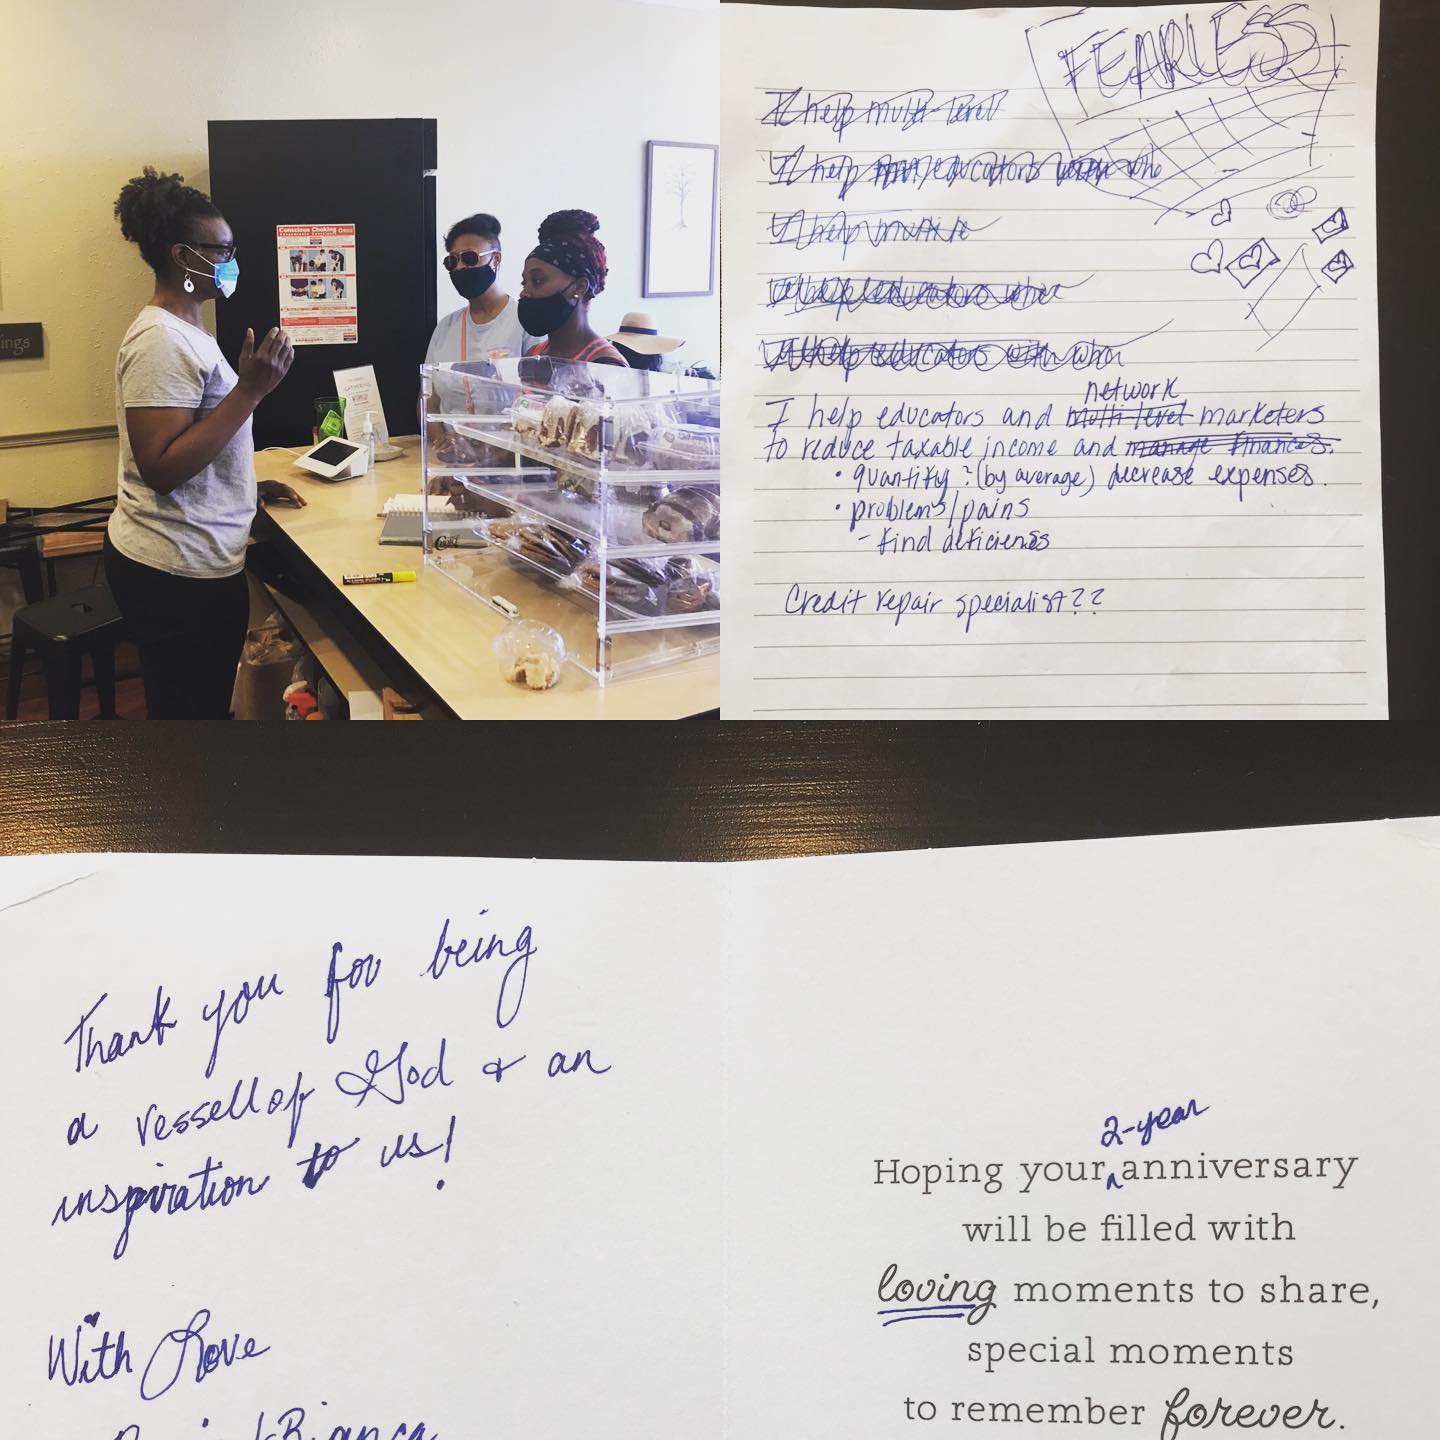 Conscious Choking
GATHERING
ings
FEARLESS
I help multi-level
I help educators who
I help
I help educators who
I help educators with when
network
I help educators and multi-level marketers
to reduce taxable income and manage finances.
• quantify :(by average) decrease expenses.
• problems/pains
- find deficienes
Credit repair specialist??
Thank you for being
a vessell of God & an
inspiration to us!
With Love
Bianca
2-year
Hoping your anniversary
will be filled with
loving moments to share,
special moments
to remember forever.